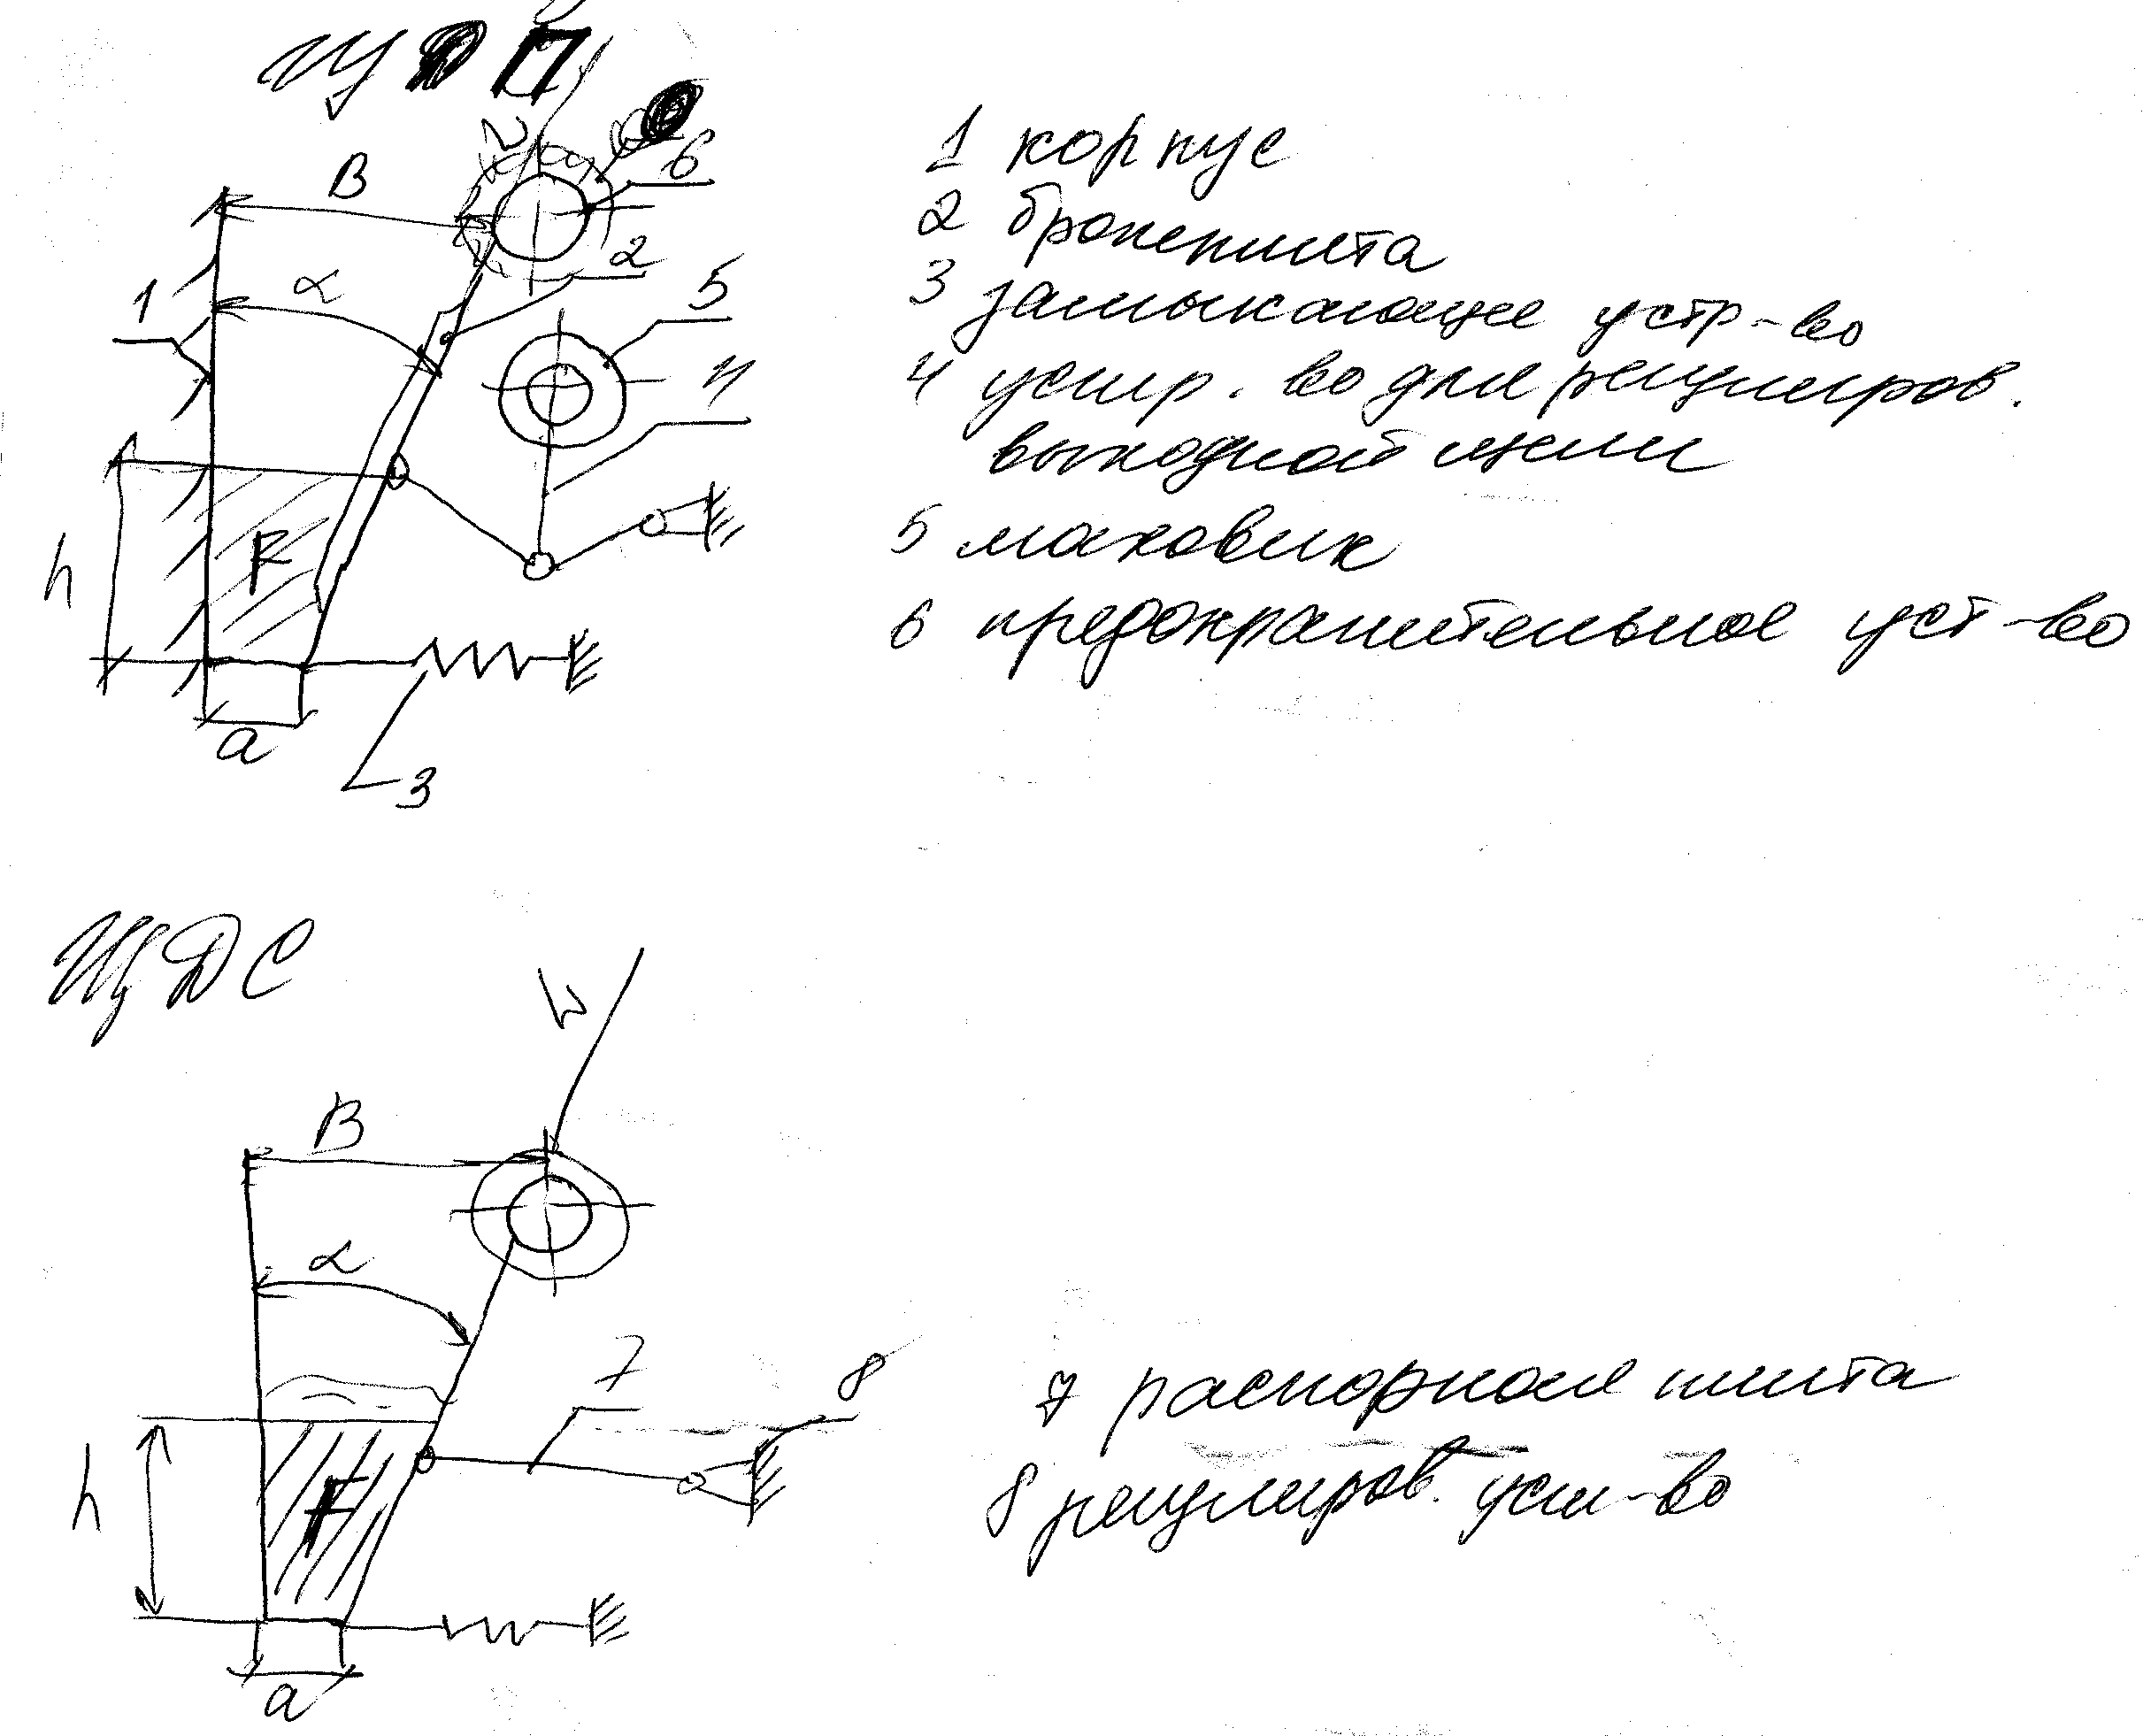 ЩДП
В
6
2
1
α
5
4
h
F
a
3
1 корпус
2 бронеплита
3 замыкающее устр-во
4 устр. во для регулиров.
выходной щели
5 маховик
6 предохранительное уст-во
ЩДС
В
α
7
8
h
F
a
7 распорная плита
8 регулиров. уст-во